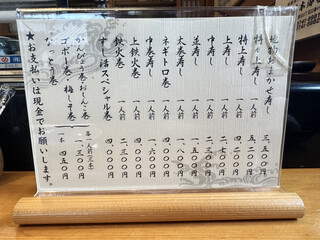 地物おまかせ寿し 三、五〇〇円
特々上寿し 一人前 五、二〇〇円
特上寿し 一人前 四、二〇〇円
上寿し 一人前 二、七〇〇円
中寿し 一人前 二、三〇〇円
並寿し 一人前
太巻寿し 一人前 一、八〇〇円
ネギトロ巻 一人前
中巻寿し 一人前 一、六〇〇円
上鉄火巻 一人前
鉄火巻 一人前 二、三〇〇円
すし活スペシャル巻 四、〇〇〇円
かんぴょう巻・おしんこ巻
ゴボー巻・梅しそ巻 一、三〇〇円
なっとう巻 一本 四五〇円
★お支払いは現金でお願いします。